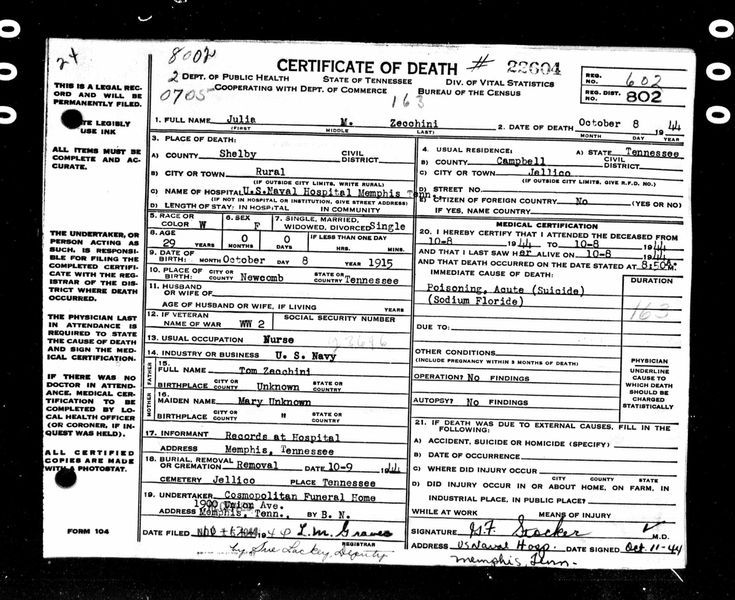 24
8002
CERTIFICATE OF DEATH # 22604
2 DEPT. OF PUBLIC HEALTH STATE OF TENNESSEE DIV. OF VITAL STATISTICS
0705 COOPERATING WITH DEPT. OF COMMERCE BUREAU OF THE CENSUS
163
REG. NO. 602
REG. DIST. NO. 802
THIS IS A LEGAL RECORD AND WILL BE PERMANENTLY FILED.
LEGIBLY
USE INK
ALL ITEMS MUST BE COMPLETE AND ACCURATE.
THE UNDERTAKER, OR PERSON ACTING AS SUCH, IS RESPONSIBLE FOR FILING THE COMPLETED CERTIFICATE WITH THE REGISTRAR OF THE DISTRICT WHERE DEATH OCCURRED.
THE PHYSICIAN LAST IN ATTENDANCE IS REQUIRED TO STATE THE CAUSE OF DEATH AND SIGN THE MEDICAL CERTIFICATION.
IF THERE WAS NO DOCTOR IN ATTENDANCE, MEDICAL CERTIFICATION TO BE COMPLETED BY LOCAL HEALTH OFFICER (OR CORONER, IF INQUEST WAS HELD).
ALL CERTIFIED COPIES ARE MADE WITH A PHOTOSTAT.
FORM 104
1. FULL NAME Julia M. Zecchini
(FIRST) MIDDLE LAST)
2. DATE OF DEATH October 8 1944
MONTH DAY
3. PLACE OF DEATH:
A) COUNTY Shelby CIVIL DISTRICT
B) CITY OR TOWN Rural
(IF OUTSIDE CITY LIMITS, WRITE RURAL)
C) NAME OF HOSPITAL U.S.Naval Hospital Memphis Tenn
(IF NOT IN HOSPITAL OR INSTITUTION, GIVE STREET ADDRESS)
D) LENGTH OF STAY: IN HOSPITAL IN COMMUNITY
4. USUAL RESIDENCE: A) STATE Tennessee
B) COUNTY Campbell CIVIL DISTRICT
C) CITY OR TOWN Jellico
(IF OUTSIDE CITY LIMITS, GIVE R.F.D. NO.)
D) STREET NO.
E) CITIZEN OF FOREIGN COUNTRY No (YES OR NO)
IF YES, NAME COUNTRY
5. RACE OR COLOR W
6. SEX F
7. SINGLE, MARRIED, WIDOWED, DIVORCED Single
8. AGE 29 YEARS 0 MONTHS 0 DAYS IF LESS THAN ONE DAY HRS. MINS.
9. DATE OF BIRTH: MONTH October DAY 8 YEAR 1915
10. PLACE OF BIRTH: CITY OR COUNTY Newcomb STATE OR COUNTRY Tennessee
11. HUSBAND OR WIFE OF
AGE OF HUSBAND OR WIFE, IF LIVING YEARS
12. IF VETERAN NAME OF WAR WW 2 SOCIAL SECURITY NUMBER
13. USUAL OCCUPATION Nurse
14. INDUSTRY OR BUSINESS U. S. Navy
FATHER
15. FULL NAME Tom Zecchini
BIRTHPLACE CITY OR COUNTY Unknown STATE OR COUNTRY
MOTHER
16. MAIDEN NAME Mary Unknown
BIRTHPLACE CITY OR COUNTY " STATE OR COUNTRY
17. INFORMANT Records at Hospital
ADDRESS Memphis, Tennessee
18. BURIAL, REMOVAL OR CREMATION Removal DATE 10-9 1944
CEMETERY Jellico PLACE Tennessee
19. UNDERTAKER Cosmopolitan Funeral Home
1900 Union Ave.
ADDRESS Memphis, Tenn. BY B. N.
DATE FILED L.M. Graves
REGISTRAR
by Sue Lackey, Deputy
MEDICAL CERTIFICATION
20. I HEREBY CERTIFY THAT I ATTENDED THE DECEASED FROM
10-8 1944 TO 10-8 1944
AND THAT I LAST SAW Her ALIVE ON 10-8 1944
AND THAT DEATH OCCURRED ON THE DATE STATED AT 8:50A M.
IMMEDIATE CAUSE OF DEATH: DURATION
Poisoning, Acute (Suicide)
(Sodium Floride) 163
DUE TO:
OTHER CONDITIONS
(INCLUDE PREGNANCY WITHIN 3 MONTHS OF DEATH)
OPERATION? No FINDINGS
AUTOPSY? No FINDINGS
PHYSICIAN
UNDERLINE CAUSE TO WHICH DEATH SHOULD BE CHARGED STATISTICALLY
21. IF DEATH WAS DUE TO EXTERNAL CAUSES, FILL IN THE FOLLOWING:
A) ACCIDENT, SUICIDE OR HOMICIDE (SPECIFY)
B) DATE OF OCCURRENCE
C) WHERE DID INJURY OCCUR
CITY COUNTY STATE
D) DID INJURY OCCUR IN OR ABOUT HOME, ON FARM, IN INDUSTRIAL PLACE, IN PUBLIC PLACE?
WHILE AT WORK MEANS OF INJURY
SIGNATURE M.D.
ADDRESS US Naval Hosp. DATE SIGNED Oct. 11-44
Memphis, Tenn.